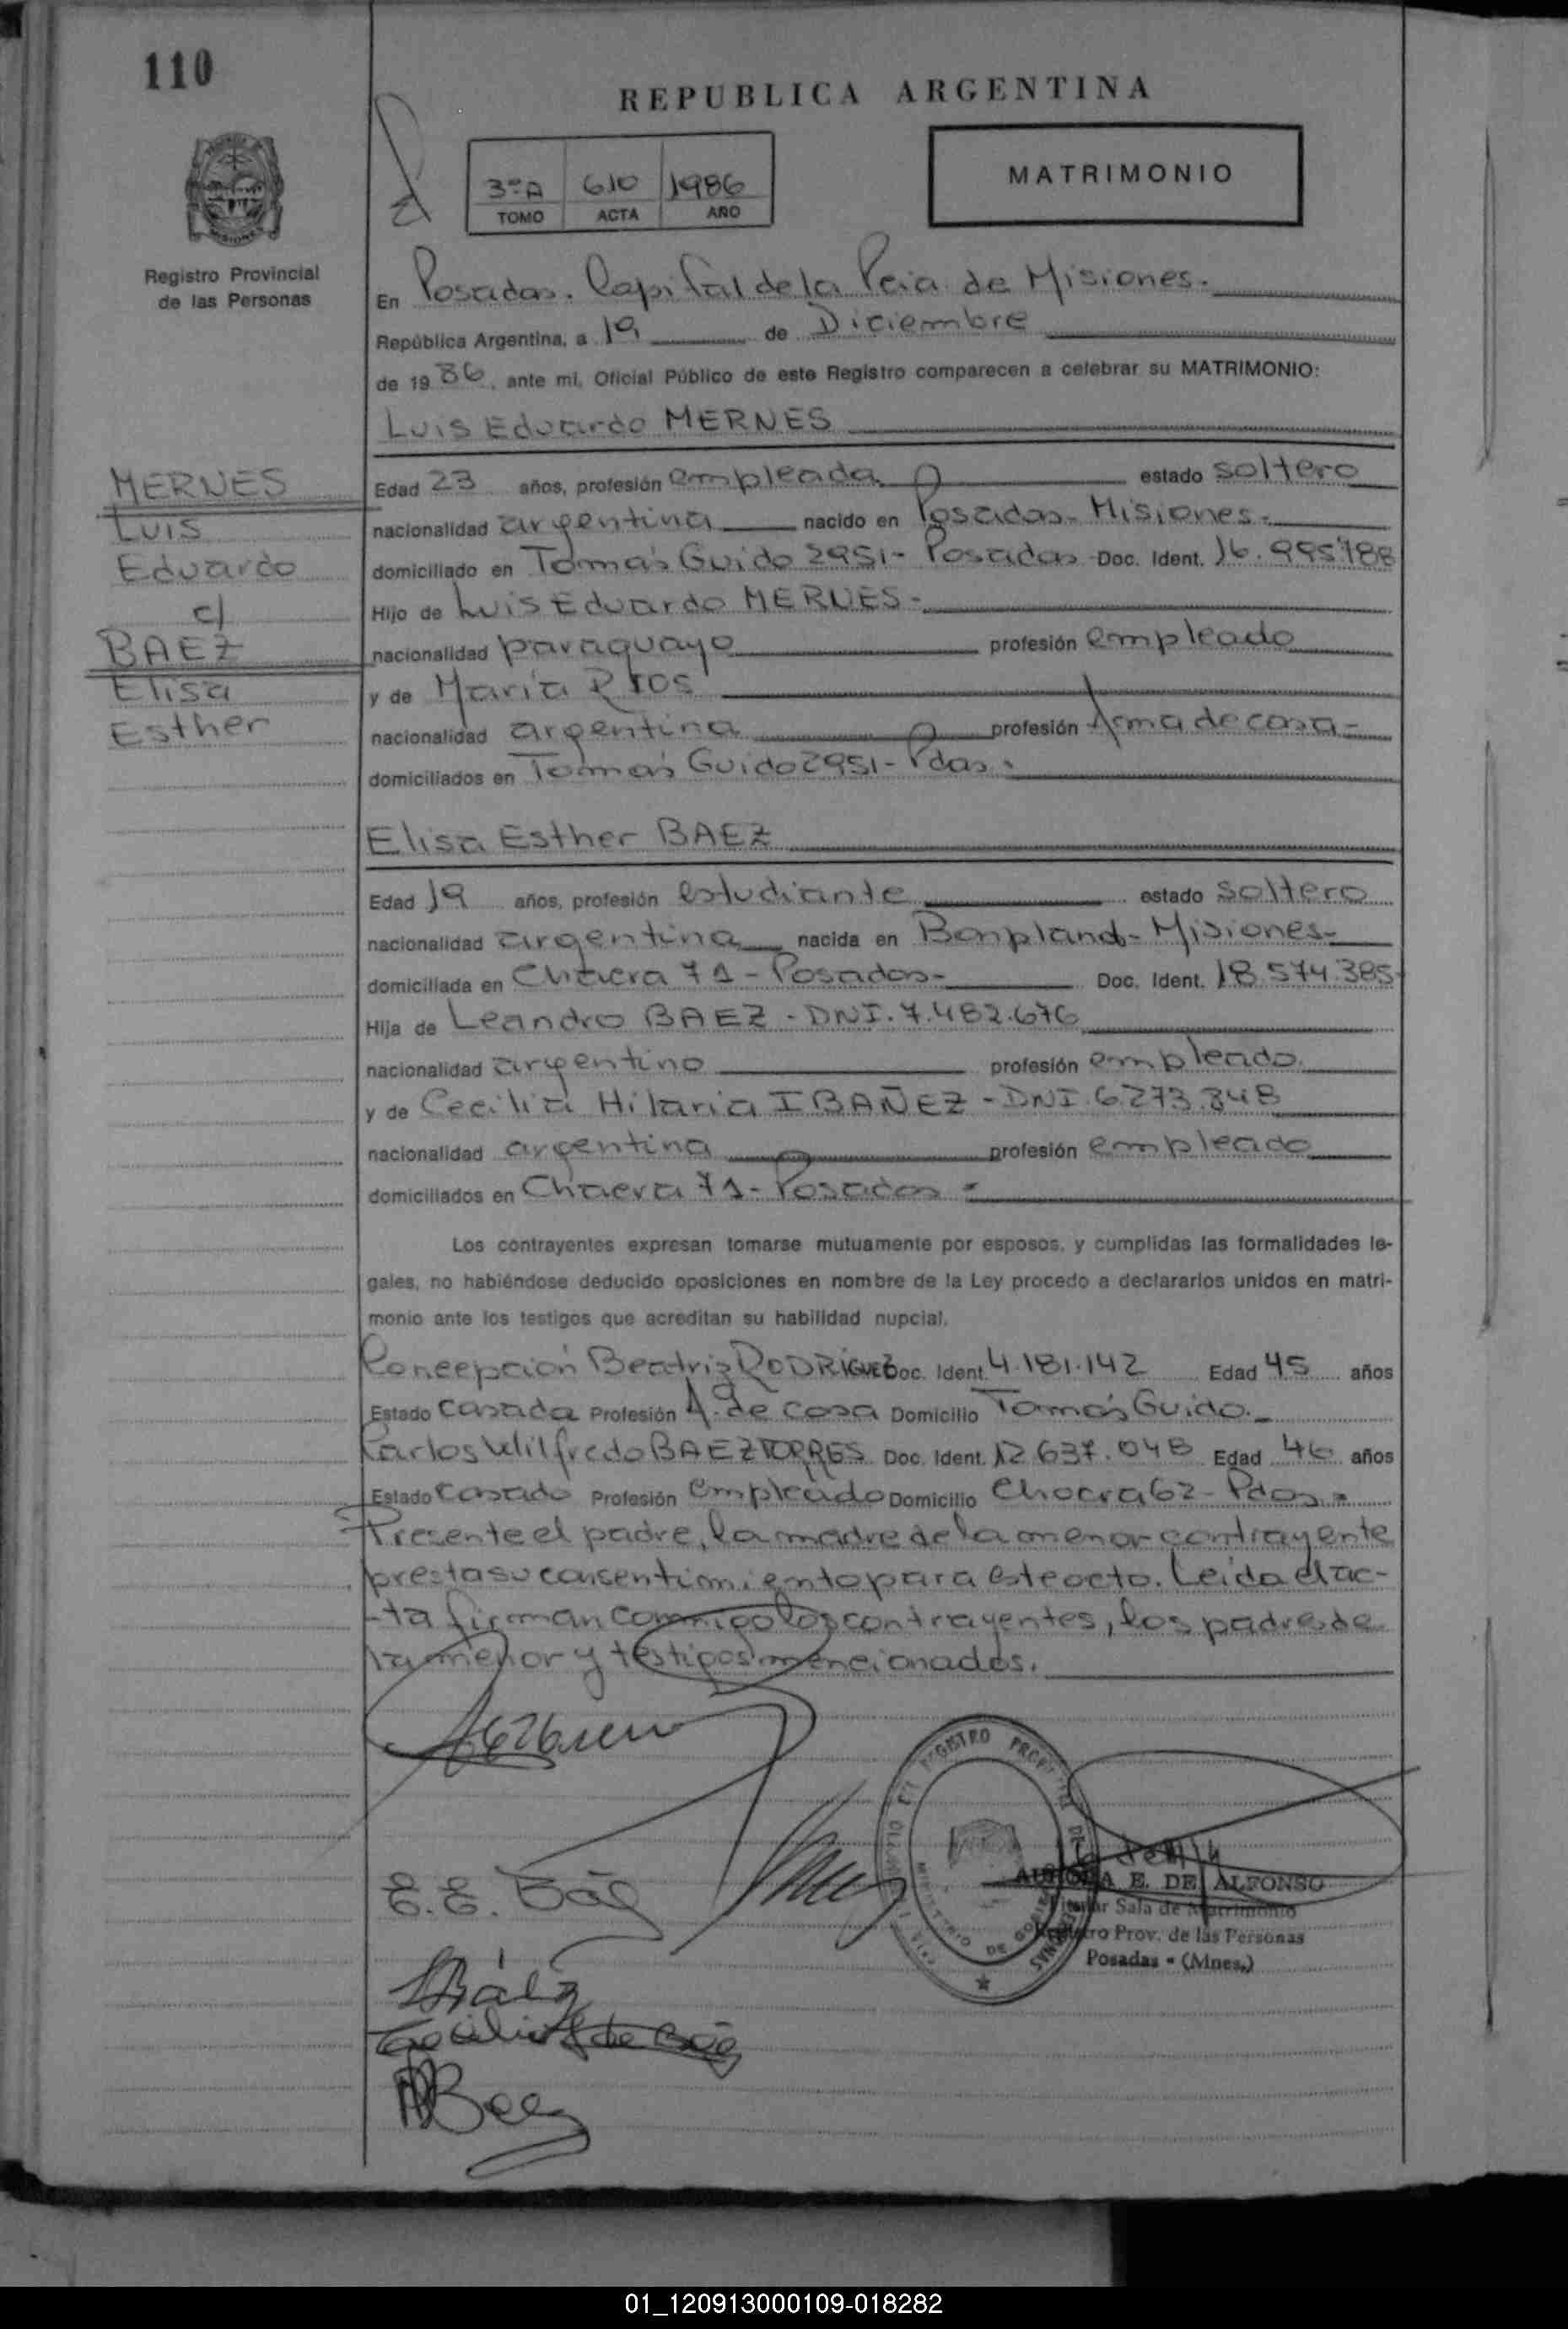 110
REPUBLICA ARGENTINA
MATRIMONIO
3ºA 610 1986
TOMO ACTA AÑO
Registro Provincial
de las Personas
En Posadas. Capital de la Pcia de Misiones.
República Argentina, a 19 de Diciembre
de 1986, ante mi, Oficial Público de este Registro comparecen a celebrar su MATRIMONIO:
Luis Eduardo MERNES
MERNES
Luis
Eduardo
c/
BAEZ
Elisa
Esther
Edad 23 años, profesión empleada. estado soltero
nacionalidad argentina nacido en Posadas - Misiones -
domiciliado en Tomás Guido 2951 - Posadas Doc. Ident. 16.995788
Hijo de Luis Eduardo MERNES -
nacionalidad paraguayo profesión empleado
y de María RIOS
nacionalidad argentina profesión Ama de casa -
domiciliados en Tomás Guido 2951 - Pdas.
Elisa Esther BAEZ
Edad 19 años, profesión estudiante estado soltero
nacionalidad argentina nacida en Bonpland - Misiones -
domiciliada en Chacra 71 - Posadas - Doc. Ident. 18.574.385
Hija de Leandro BAEZ - DNI. 7.482.676
nacionalidad argentino profesión empleado.
y de Cecilia Hilaria IBAÑEZ - DNI 6.273.848
nacionalidad argentina profesión empleado
domiciliados en Chacra 71 - Posadas -
Los contrayentes expresan tomarse mutuamente por esposos, y cumplidas las formalidades le-
gales, no habiéndose deducido oposiciones en nombre de la Ley procedo a declararlos unidos en matri-
monio ante los testigos que acreditan su habilidad nupcial.
Concepción Beatriz RODRÍGUEZ Doc. Ident. 4.181.142 Edad 45 años
Estado casada Profesión A. de casa Domicilio Tomás Guido. -
Carlos Wilfredo BAEZ TORRES Doc. Ident. 12.637.048 Edad 46 años
Estado casado Profesión empleado Domicilio Chacra 62 - Pdas -
Presente el padre, la madre de la menor contrayente
presta su consentimiento para este acto. Leida el ac-
-ta firman conmigo los contrayentes, los padres de
la menor y testigos mencionados.
E. E. Báez
Báez
Cecilia I de Báez
Baez
REGISTRO DE
MINISTERIO DE GOBIERNO
E. DE ALFONSO
Sala de Matrimonio
Prov. de las Personas
Posadas - (Mnes.)
01_120913000109-018282